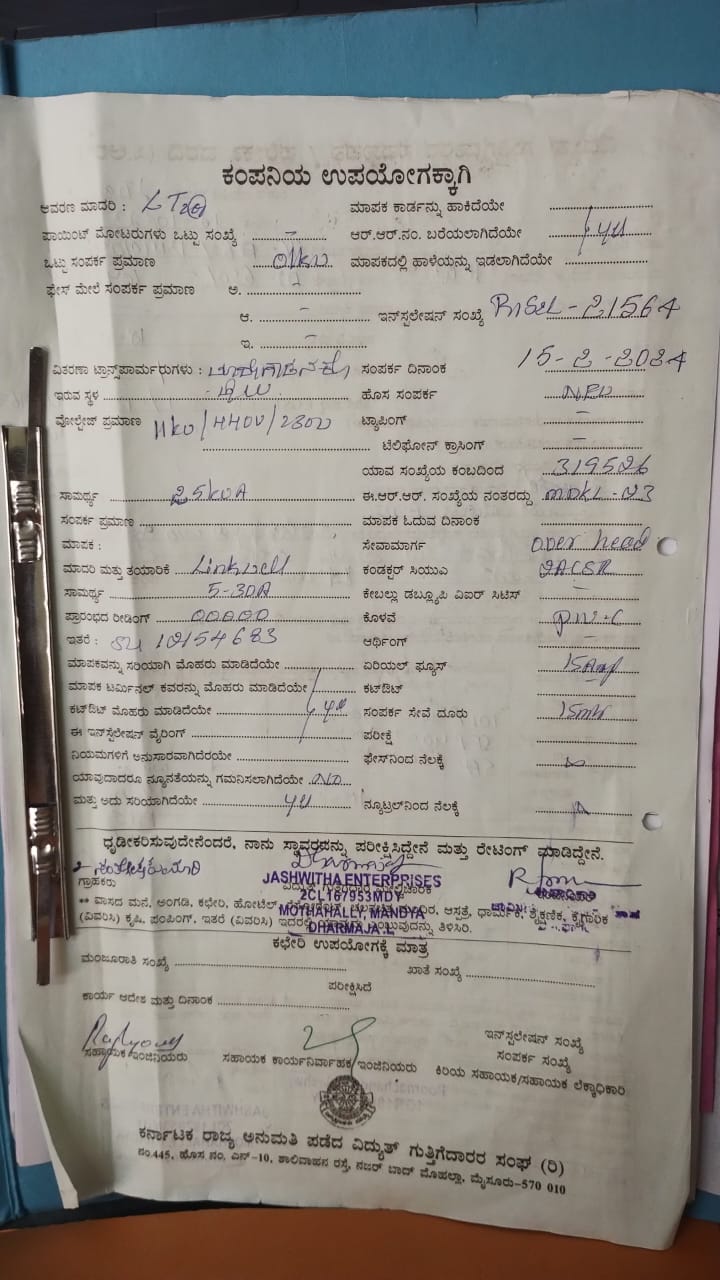 ಕಂಪನಿಯ ಉಪಯೋಗಕ್ಕಾಗಿ
ಆವರಣ ಮಾದರಿ : ಮಾಪಕ ಕಾರ್ಡನ್ನು ಹಾಕಿದೆಯೇ
ಪಾಯಿಂಟ್ ಮೋಟರುಗಳು ಒಟ್ಟು ಸಂಖ್ಯೆ – ಆರ್.ಆರ್.ನಂ. ಬರೆಯಲಾಗಿದೆಯೇ
ಒಟ್ಟು ಸಂಪರ್ಕ ಪ್ರಮಾಣ ಮಾಪಕದಲ್ಲಿ ಹಾಳೆಯನ್ನು ಇಡಲಾಗಿದೆಯೇ
ಫೇಸ್ ಮೇಲೆ ಸಂಪರ್ಕ ಪ್ರಮಾಣ ಅ. –
ಆ. – ಇನ್‌ಸ್ಟಲೇಷನ್ ಸಂಖ್ಯೆ 21564
ಇ. –
ವಿತರಣಾ ಟ್ರಾನ್ಸ್‌ಪಾರ್ಮರುಗಳು : ಸಂಪರ್ಕ ದಿನಾಂಕ 15-2-2024
ಇರುವ ಸ್ಥಳ ಹೊಸ ಸಂಪರ್ಕ NEW
ವೋಲ್ಟೇಜ್ ಪ್ರಮಾಣ 11KV/440V/230V ಟ್ಯಾಪಿಂಗ್ –
ಟೆಲಿಫೋನ್ ಕ್ರಾಸಿಂಗ್ –
ಯಾವ ಸಂಖ್ಯೆಯ ಕಂಬದಿಂದ 319526
ಸಾಮರ್ಥ್ಯ 25KVA ಈ.ಆರ್.ಆರ್. ಸಂಖ್ಯೆಯ ನಂತರದ್ದು
ಸಂಪರ್ಕ ಪ್ರಮಾಣ ಮಾಪಕ ಓದುವ ದಿನಾಂಕ
ಮಾಪಕ : ಸೇವಾಮಾರ್ಗ over head
ಮಾದರಿ ಮತ್ತು ತಯಾರಿಕೆ Linkwell ಕಂಡಕ್ಟರ್ ಸಿಯುಎ
ಸಾಮರ್ಥ್ಯ 5-30A ಕೇಬಲ್ಲು ಡಬ್ಲ್ಯೂಪಿ ವಿಐರ್ ಸಿಟಿಸ್ –
ಪ್ರಾರಂಭದ ರೀಡಿಂಗ್ 00000 ಕೊಳವೆ
ಇತರೆ : 12154683 ಆರ್ಥಿಂಗ್ –
ಮಾಪಕವನ್ನು ಸರಿಯಾಗಿ ಮೊಹರು ಮಾಡಿದೆಯೇ ಏರಿಯಲ್ ಫ್ಯೂಸ್ 15Amp
ಮಾಪಕ ಟರ್ಮಿನಲ್ ಕವರನ್ನು ಮೊಹರು ಮಾಡಿದೆಯೇ ಕಟ್‌ಔಟ್
ಕಟ್‌ಔಟ್ ಮೊಹರು ಮಾಡಿದೆಯೇ ಸಂಪರ್ಕ ಸೇವೆ ದೂರು
ಈ ಇನ್‌ಸ್ಟಲೇಷನ್ ವೈರಿಂಗ್ ಪರೀಕ್ಷೆ
ನಿಯಮಗಳಿಗೆ ಅನುಸಾರವಾಗಿದೆರಯೇ ಫೇಸ್‌ನಿಂದ ನೆಲಕ್ಕೆ
ಯಾವುದಾದರೂ ನ್ಯೂನತೆಯನ್ನು ಗಮನಿಸಲಾಗಿದೆಯೇ NO
ಮತ್ತು ಅದು ಸರಿಯಾಗಿದೆಯೇ ನ್ಯೂಟ್ರಲ್‌ನಿಂದ ನೆಲಕ್ಕೆ
ಧೃಡೀಕರಿಸುವುದೇನೆಂದರೆ, ನಾನು ಸ್ಥಾವರವನ್ನು ಪರೀಕ್ಷಿಸಿದ್ದೇನೆ ಮತ್ತು ರೇಟಿಂಗ್ ಮಾಡಿದ್ದೇನೆ.
JASHWITHA ENTERPRISES
ಗ್ರಾಹಕರು
2CL167953MDY
** ವಾಸದ ಮನೆ, ಅಂಗಡಿ, ಕಛೇರಿ, ಹೋಟೆಲ್ ಆಸ್ಪತ್ರೆ, ಧಾರ್ಮಿಕ, ಶೈಕ್ಷಣಿಕ, ಕೈಗಾರಿಕ
MOTHAHALLY, MANDYA
(ವಿವರಿಸಿ) ಕೃಷಿ, ಪಂಪಿಂಗ್, ಇತರೆ (ವಿವರಿಸಿ) ಇದರಲ್ಲಿ ತಿಳಿಸಿರಿ.
DHARMAJA.L
ಕಛೇರಿ ಉಪಯೋಗಕ್ಕೆ ಮಾತ್ರ
ಮಂಜೂರಾತಿ ಸಂಖ್ಯೆ ಖಾತೆ ಸಂಖ್ಯೆ
ಪರೀಕ್ಷಿಸಿದೆ
ಕಾರ್ಯ ಆದೇಶ ಮತ್ತು ದಿನಾಂಕ
ಇನ್‌ಸ್ಟಲೇಷನ್ ಸಂಖ್ಯೆ
ಸಂಪರ್ಕ ಸಂಖ್ಯೆ
ಸಹಾಯಕ ಇಂಜಿನಿಯರು ಸಹಾಯಕ ಕಾರ್ಯನಿರ್ವಾಹಕ ಇಂಜಿನಿಯರು ಕಿರಿಯ ಸಹಾಯಕ/ಸಹಾಯಕ ಲೆಕ್ಕಾಧಿಕಾರಿ
ಕರ್ನಾಟಕ ರಾಜ್ಯ ಅನುಮತಿ ಪಡೆದ ವಿದ್ಯುತ್ ಗುತ್ತಿಗೆದಾರರ ಸಂಘ (ರಿ)
ನಂ.445, ಹೊಸ ನಂ. ಎನ್-10, ಶಾಲಿವಾಹನ ರಸ್ತೆ, ನಜರ್ ಬಾದ್ ಮೊಹಲ್ಲಾ, ಮೈಸೂರು-570 010